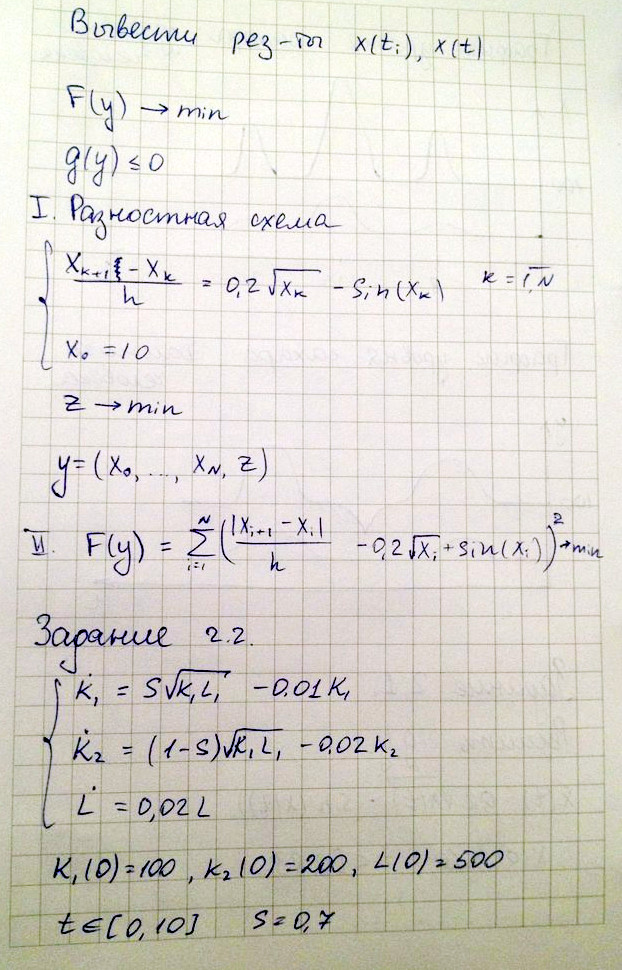 Вывести рез-ты x(tᵢ), x(t)
F(y) → min
g(y) ≤ 0
I. Разностная схема
(x_{k+1} - x_k)/h = 0,2√x_k - sin(x_k)  k = 1,N
x₀ = 10
z → min
y = (x₀, ..., x_N, z)
II. F(y) = Σ_{i=1}^{N} (|x_{i+1} - x_i|/h - 0,2√x_i + sin(x_i))² → min
Задание 2.2.
K̇₁ = S√K₁L₁ - 0.01K₁
K̇₂ = (1-S)√K₁L₁ - 0.02K₂
L̇ = 0,02L
K₁(0) = 100, K₂(0) = 200, L(0) = 500
t ∈ [0, 10]  S = 0,7